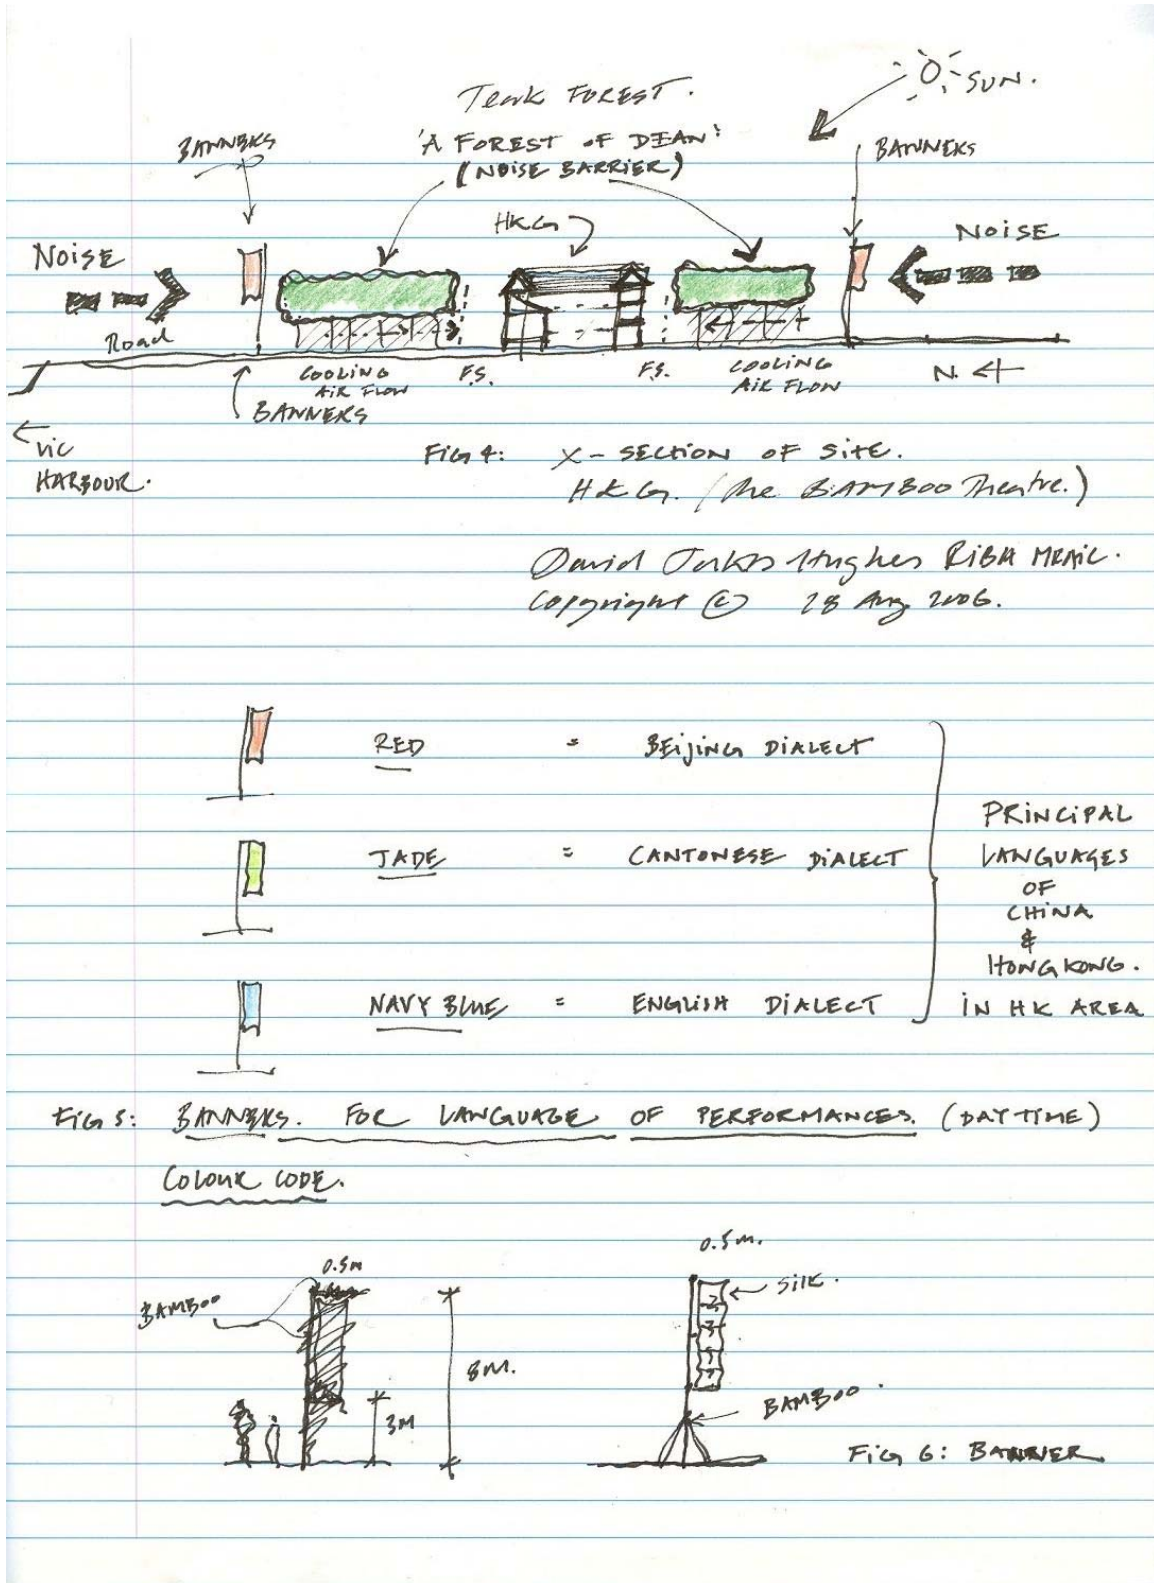 Teak FOREST.
SUN.
'A FOREST OF DEAN'
(NOISE BARRIER)
BANNERS
BANNERS
HKG
NOISE
NOISE
Road
COOLING
AIR FLOW
F.S.
F.S.
COOLING
AIR FLOW
N
BANNERS
VIC
HARBOUR.
FIG 4: X-SECTION OF SITE.
HKG. (The BAMBOO Theatre.)
David Hughes RIBA MRAIC.
Copyright © 28 Aug 2006.
RED = BEIJING DIALECT
JADE = CANTONESE DIALECT
NAVY BLUE = ENGLISH DIALECT
PRINCIPAL
LANGUAGES
OF
CHINA
&
HONG KONG.
IN HK AREA
FIG 5: BANNERS. FOR LANGUAGE OF PERFORMANCES. (DAYTIME)
COLOUR CODE.
0.5M
BAMBOO
8M.
3M
0.5M.
SILK.
BAMBOO.
FIG 6: BANNER